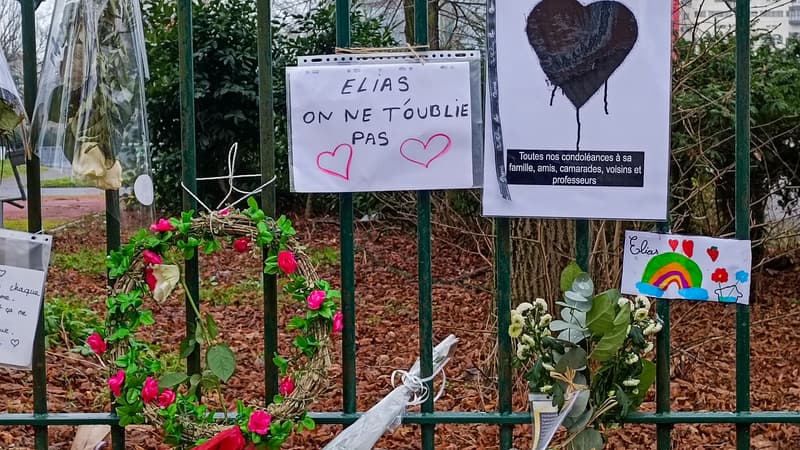 ELIAS
ON NE T'OUBLIE
PAS
Toutes nos condoléances à sa
famille, amis, camarades, voisins et
professeurs
Elias
chaque